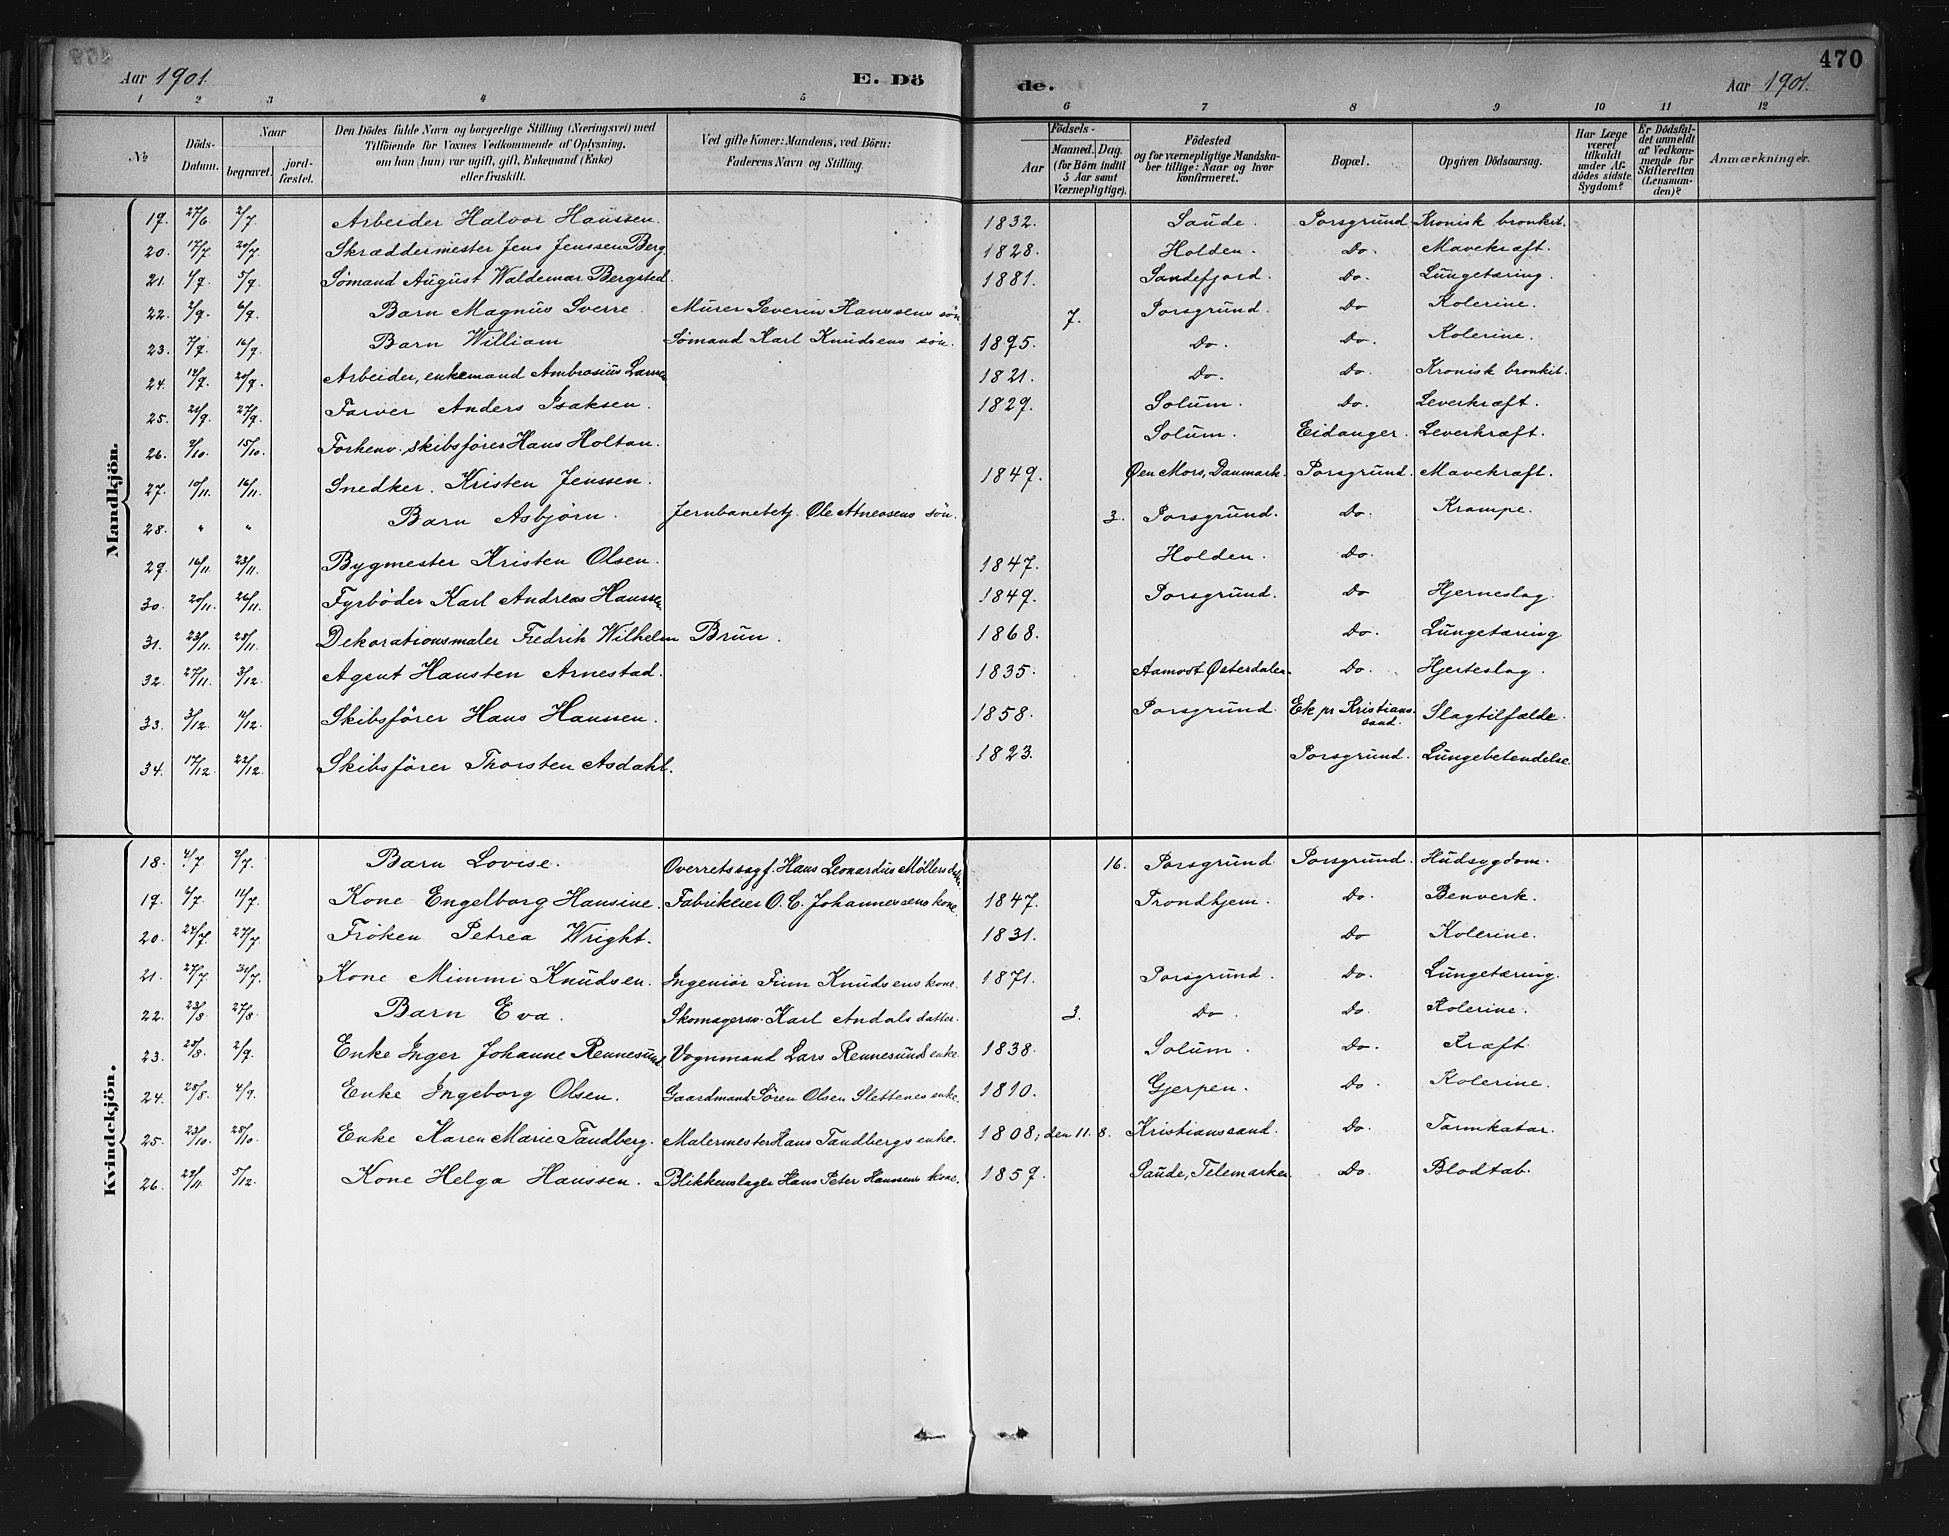 470
Aar 1901. E. Dö de. Aar 1901.
1 2 3 4 5 6 7 8 9 10 11 12
№ Döds-Datum. Naar begravet. jord-fæstet. Den Dödes fulde Navn og borgerlige Stilling (Næringsvei) med Tilföiende for Voxnes Vedkommende af Oplysning, om han (hun) var ugift, gift, Enkemand (Enke) eller fraskilt. Ved gifte Koner: Mandens, ved Börn: Faderens Navn og Stilling. Födsels- Aar Maaned. Dag. (for Börn indtil 5 Aar samt Værnepligtige). Födested og for værnepligtige Mandskaber tillige: Naar og hvor konfirmeret. Bopæl. Opgiven Dödsaarsag. Har Læge været tilkaldt under Afdödes sidste Sygdom? Er Dödsfaldet anmeldt af Vedkommende for Skifteretten (Lensmanden)? Anmærkninger.
Mandkjön.
19. 27/6 2/7 Arbeider Halvor Hanssen. 1832. Saude. Porsgrund Kronisk bronkit.
20. 17/7 20/7 Skræddermester Jens Jenssen Berg 1828. Holden. Do. Mavekræft.
21. 1/9 5/9. Sømand August Waldemar Bergsted. 1881. Sandefjord. Do. Lungetæring.
22. 2/9. 6/9. Barn Magnus Sverre. Murer Severin Hanssens søn 7. Porsgrund. Do Kolerine.
23. 7/9. 16/9. Barn William Sømand Karl Knudsens søn. 1895. Do. Do. Kolerine.
24. 14/9. 20/9. Arbeider, enkemand Ambrosius Larsen 1821. Do. Do. Kronisk bronkit.
25. 21/9. 27/9. Farver Anders Isaksen. 1829. Solum. Do. Leverkræft.
26. 9/10. 15/10. Forhenv. skibsfører Hans Holtan. Solum. Eidanger. Leverkræft.
27. 10/11. 16/11. Snedker. Kristen Jenssen. 1849. Øen Mors, Danmark. Porsgrund. Mavekræft.
28. " " Barn Asbjørn. Jernbanebetj. Ole Atneosens søn. 3. Porsgrund. Do. Krampe.
29. 16/11. 23/11. Bygmester Kristen Olsen. 1847. Holden. Do.
30. 20/11. 26/11. Fyrbøder Karl Andreas Hanssen 1849. Porsgrund. Do Hjerneslag.
31. 23/11. 28/11. Dekorationsmaler Fredrik Wilhelm Brun. 1868. Do. Lungetæring
32. 27/11. 3/12. Agent Hansten Arnestad. 1835. Aamodt Østerdalen. Do. Hjerteslag.
33. 3/12. 11/12. Skibsfører Hans Hanssen. 1858. Porsgrund. Ek pr Kristianssand. Slagtilfælde.
34. 17/12. 22/12. Skibsfører Thorsten Asdahl. 1823. Porsgrund. Lungebetendelse.
Kvindekjön.
18. 4/7 9/7. Barn Lovise. Overretssagf. Hans Leonardus Møllers 16. Porsgrund Porsgrund. Hudsygdom.
19. 6/7 11/7. Kone Engelborg Hansine. Fabrikeier O. C. Johannessens kone. 1847. Trondhjem. Do. Benverk.
20. 24/7. 27/7. Frøken Petrea Wright. 1831. Do Kolerine.
21. 27/7 31/7. Kone Mimmi Knudsen. Ingeniør Finn Knudsens kone. 1871. Porsgrund. Do. Lungetæring.
22. 23/8. 27/8 Barn Eva. Skomagersv. Karl Andals datter. 3. Do. Do. Kolerine.
23. 28/8. 2/9. Enke Inger Johanne Rennesund Vognmand Lars Rennesunds enke. 1838. Solum. Do. Kræft.
24. 28/8. 4/9. Enke Ingeborg Olsen. Gaardmand Søren Olsen Slettenes enke. 1810. Gjerpen. Do. Kolerine.
25. 23/10. 28/10. Enke Karen Marie Tandberg. Malermester Hans Tandbergs enke. 1808; den 11. 8. Kristianssand. Do. Tarmkatar.
26. 29/11. 5/12. Kone Helga Hanssen. Blikkenslager Hans Peter Hanssens kone. 1859. Saude, Telemarken. Do. Blodtab.